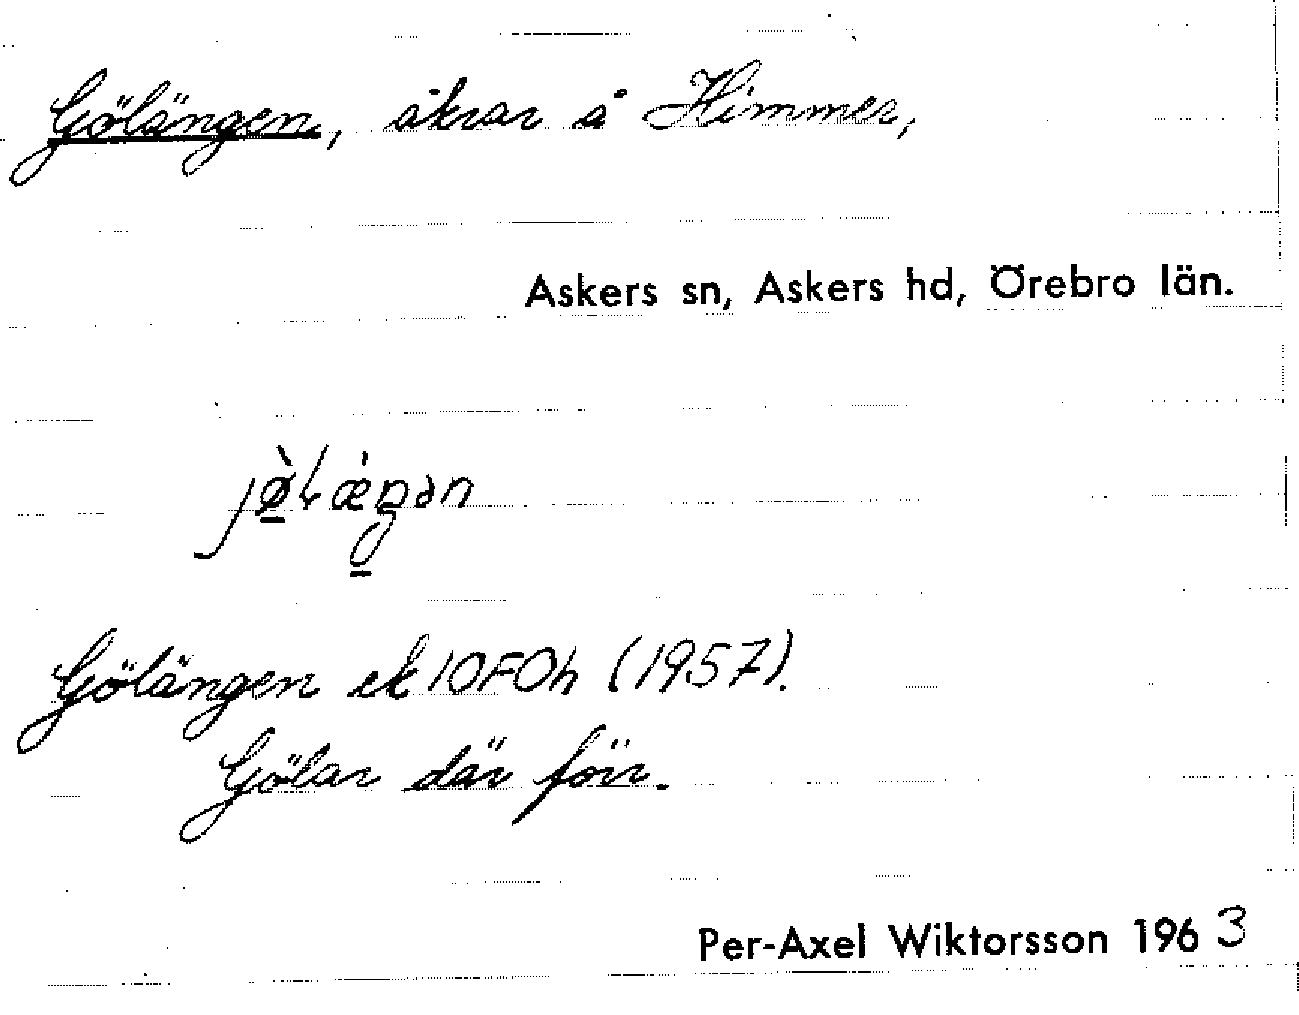 Gölängen, åkrar å Himmer,
Askers sn, Askers hd, Örebro län.
jø̀ɫæ̀ŋən
Gölängen ek 10F0h (1957).
Gölar där förr.
Per-Axel Wiktorsson 1963